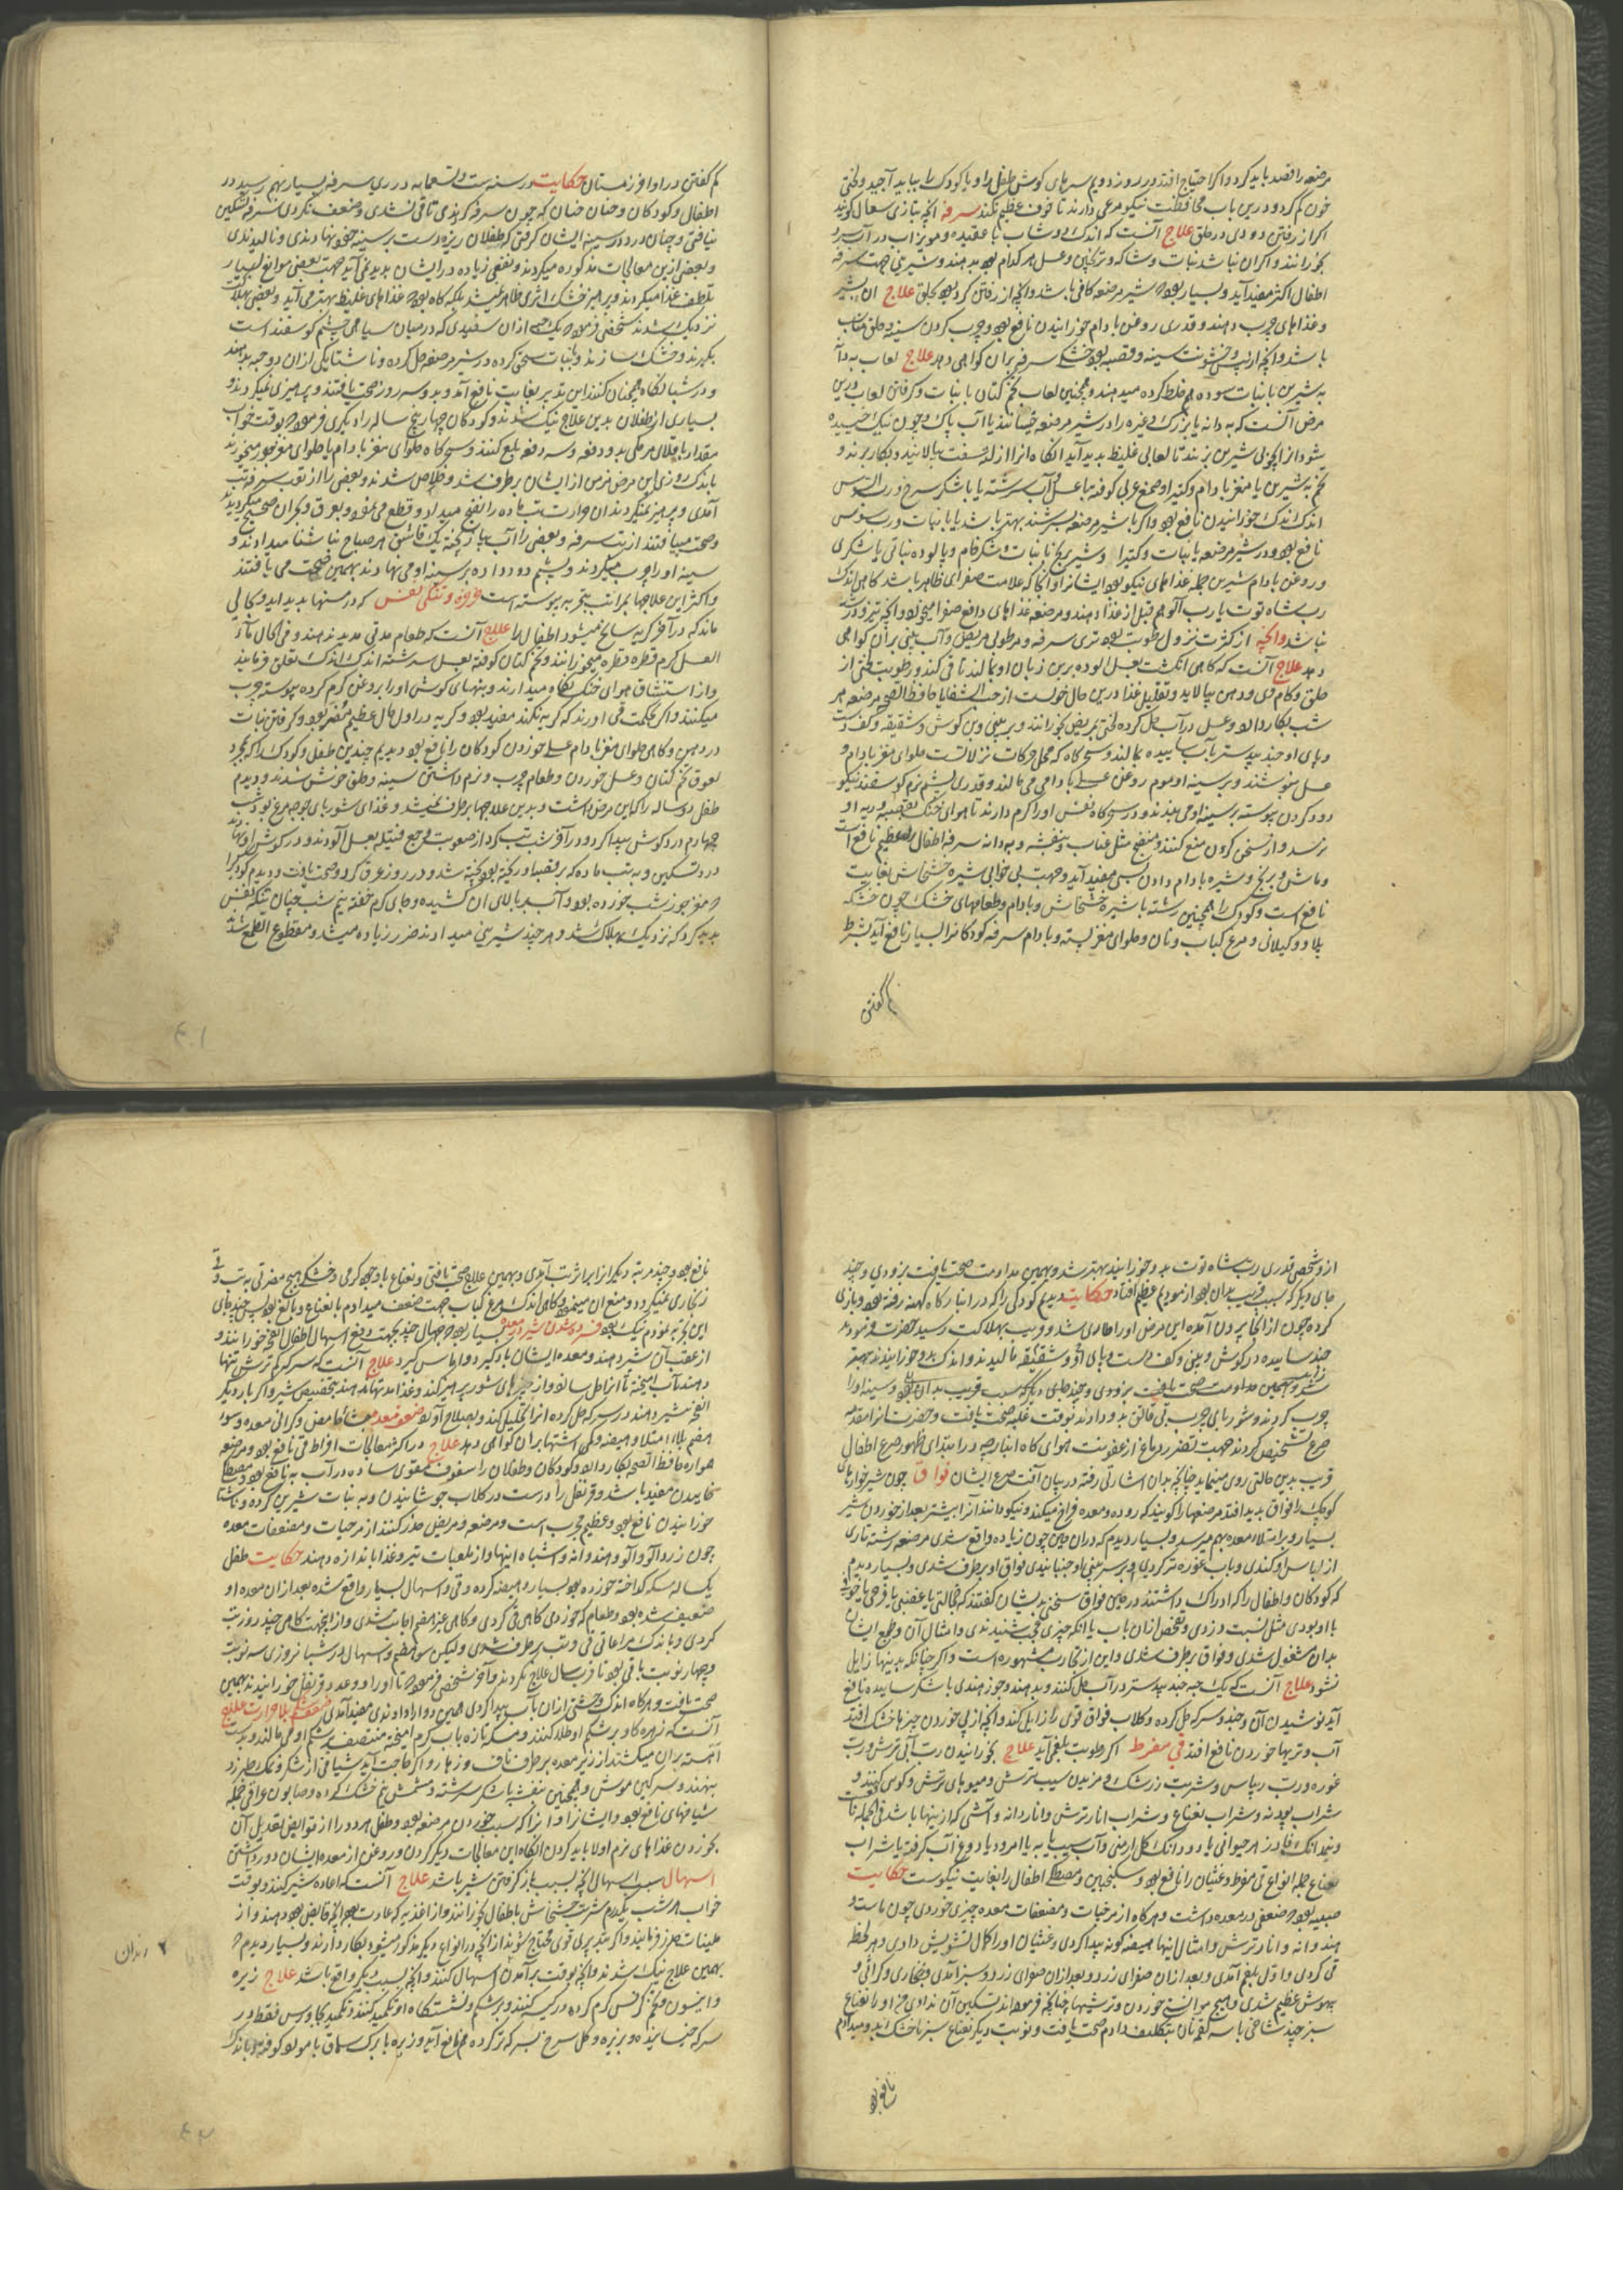 مرضعه را قصد باید کرد و اگر احتیاج افتد در روز دویم سرهای گوش طفل را و یا کودک را بباید آجید و لختی
خون کم کرد و درین باب محافظت نیکو مرعی دارند تا خوف عظیم نکند سرفه آنچه بتازی سعال گویند
اگر از رفتن دودی در حلق علاج آنست که اندک دوشاب یا عقیده مویز آب در آب سرد
بخورانند و اگر آن نباشد نبات و شاکه و ترنجبین و عسل هر کدام بود بدهند و شیرینی جهت سرفه
اطفال اکثر مفید آید و بسیار بود که شیر مرضعه کافی باشد و آنچه از رفتن گرد بود بحلق علاج آن شیر
و غذاهای چرب دهند و قدری روغن بادام خورانیدن نافع بود و چرب کردن سینه و حلق مناسب
باشد و آنچه از یبس و خشونت سینه و قصبه بود خشکی سرفه بران گواهی دهد علاج لعاب به دانه
به شیرین با نبات سوده هم خلط کرده میدهند و همچنین لعاب تخم کتان با نبات و گرفتن لعاب درین
مرض آنست که به دانه یا بزرک و غیره را در شیر مرضعه خیسانند یا آب پاک و چون نیک خیسیده
شود از چوبی شیرین بزنند تا لعابی غلیظ پدید آید آنگاه آنرا از لته سفت بپالایند و بکار برند و
تخم به شیرین یا مغز بادام و کتیرا و صمغ عربی کوفته با عسل و آب سرشته یا با شکر سرخ و رب السوس
اندک اندک خورانیدن نافع بود و اگر با شیر مرضعه بسرشند بهتر باشد یا با نبات و رب سوس
نافع بود و در شیر مرضعه با نبات و کتیرا و شیر برنج با نبات و شکر خام و پالوده نباتی یا شکری
و روغن بادام شیرین جمله غذاهای نیکو بود ایشانرا و آنجا که علامت صفرای ظاهر باشد گاهی اندک
رب شاه توت یا رب آلو هم قبل از غذا دهند و مرضعه غذاهای دافع صفرا میخورد و آنچه تیز و ترش
نباشد و آنچه از کثرت نزول رطوبت بود تری سرفه و مرطوبی مریض و آب بینی بران گواهی
دهد علاج آنست که گاهی انگشت بعسل آلوده برین زبان او بمالند تا قی کند و رطوبت لختی از
حلق و کام وی و دهن بپالاید و تقلیل غذا درین حال خوبست از حب الشفا یا حافظ الصحه مرضعه هر
شب بکار دارد و عسل در آب حل کرده لختی مریض بخورانند و بر بینی و بن گوش و شقیقه و کف دست
و پای او جند بیدستر بآب ساییده بمالند و سحرگاه که محل حرکات نزلاتست حلوای مغز بادام و
عسل بنوشند و بر سینه او موم روغن عسلی بادامی می مالند و قدری پشم نرم گوسفند نیکو
دود کردن پیوسته بر سینه او می بندند و در سحرگاه نفس او را گرم دارند تا هوای خنک بقصبه و ریه او
نرسد و از سخن کردن منع کنند و منضج مثل عناب و بنفشه و به دانه سرفه اطفال را عظیم نافع است
و ماش و برنج و شیره بادام دادن بسی مفید آید و جهت بی خوابی شیره خشخاش بغایت
نافع است و کودک را همچنین رشته با شیره خشخاش و بادام و طعامهای خشک چون خشکه
پلاو و گیلانی و مرغ کباب و نان و حلوای مغز پسته و بادام سرفه کودکانرا بسیار نافع آید بشرط
کم گفتن
کم گفتن در اواخر زمستان حکایت در سنه ست و تسعمایه در ری سرفه بسیار بهم رسید در
اطفال و کودکان و چنان چنان که چون سرفه کردندی تا قی نشدی و ضعف نکردی سرفه تسکین
نیافتی و چنان درد در سینه ایشان گرفتی که طفلان ریزه دست بر سینه خود نهادندی و نالیدندی
و بعضی ازین معالجات مذکوره میکردند و نفعی زیاده در ایشان پدید نمی آید جهت بعضی موانع بسیار
تلطیف غذا میکردند و پرهیز خشک اثری ظاهر نمیشد بلکه گاه بود که غذاهای غلیظ بهتر می آید و بعضی بهلاک
نزدیک شدند شخصی فرمود که یک حبه از آن سفیدی که در میان سیاهی چشم گوسفند است
بگیرند و خشک سازند و با نبات سحق کرده در شیر مرضعه حل کرده و ناشتا یکی از آن دو حبه بدهند
و در شبانگاه همچنان کنند این تدبیر بغایت نافع آمد و بدو سه روز صحت یافتند و پرهیزی نمیکردند و
بسیاری از طفلان بدین علاج نیک شدند و کودکان چهار پنج ساله را دیگری فرمود که بوقت خواب
مقدار باقلای مرمکی بدو دفعه و سه دفعه بلع کنند و سحرگاه حلوای مغز بادام یا حلوای مغز جوز میخورند
باندک روزی این مرض مزمن از ایشان برطرف شد و خلاص شدند و بعضی را از تعب سرفه تب
آمدی و پرهیز نمیکردند آن حرارت تب ماده را نضج میداد و قطع می نمود و بعرق و بحران صحیح میگردیدند
و صحت مییافتند از تب سرفه و بعضی را آب بهار پخته یک قاشق هر صباح ناشتا میدادند و
سینه او را چرب میکردند و پشم دود داده بر سینه او می نهادند بهمین صحت می یافتند
و اکثر این علاجها بمراتب بتجربه پیوسته است خروزه و تنگی نفس که در سنها پدید آید و بحالی
ماند که در آخر گریه سانح میشود اطفال را علاج آنست که طعام مدتی مدید ندهند و فی الحال ماء
العسل گرم قطره قطره میخورانند و تخم کتان کوفته بعسل سرشته اندک اندک تعلق فرمایند
و از استنشاق هوای خنک نگاه میدارند و بنهای گوش او را بروغن گرم کرده پیوسته چرب
میکنند و اگر بحکمت قی آورند که گریه نکند مفید بود و گریه در اول حال عظیم مضر بود و گرفتن نبات
در دهن و گاهی حلوای مغز بادام عسلی خوردن کودکان را نافع بود و دیدیم چندین طفل و کودک را که بمجرد
لعوق تخم کتان و عسل خوردن و طعام چرب و نرم داشتن سینه و حلق خوش شدند و دیدم
طفل دو ساله را که این مرض داشت و بدین علاجها برطرف نمیشد و غذای شوربای جوجه مرغ بود شب
چهارم درد گوش پیدا کرد و در آخر شب تب کرد از صعوبت وجع فتیله بعسل آلودند و در گوش او نهادند
درد تسکین و به تب ماده که بر قصبه او ریخته بود پخته شد و در روز عرق کرد و صحت یافت و دیدم کودکی را
که مغز جوز شب خورده بود و آب بر بالای آن کشیده و جای گرم خفته نیم شب چنان تنگ نفس
پدید کرد که نزدیک بهلاک شد و هر چند شیرینی میدادند ضرر زیاده میشد و مقطوع الطمع شدند
از و شخصی قدری رب شاه توت بدو خورانید بهتر شد و بهمین مداومت صحت یافت بزودی و چند
جای دیگر که سبب قریب بدان بود آزمودیم عظیم افتاد حکایت دیدیم کودکی را که در انبار کاه کهنه رفته بود و بازی
کرده چون از آنجا بیرون آمده این مرض او را طاری شد و قریب بهلاکت رسید حضرت فرمودند
جند ساییده در گوش و بینی و کف دست و پای او و شقیقه مالیدند و اندک بدو خورانیدند بهتر
شد و بهمین مداومت صحت یافت بزودی و چند جای دیگر که سبب قریب بدان بود و سینه او را
چرب کردند و شوربای چرب بی فالتق بدو دادند بوقت غلبه صحت یافت و حضرت آنرا مقدمه
صرع تشخیص کردند جهت تضرر دماغ از عفونت هوای کاه انبار چه در ابتدای ظهور صرع اطفال
قریب بدین حالتی روی مینماید چنانچه بدان اشارتی رفته در بیان آفت صرع ایشان فواق چون شیر خوارهای
کوچک را فواق پدید افتد مرضعها را گویند که روده و معده فراخ میکند و نیکو دانند آنرا بیشتر بعد از خوردن شیر
بسیار و بر امتلاء معده بهم میرسد و بسیار دیدم که در آن حین چون زیاده واقع شدی مرضعه رشته تاری
از لباس او کندی و باب غوره تر کردی و بر سر بینی او چنبانیدی فواق او برطرف شدی و بسیار دیدم
که کودکان و اطفال را که ادراک داشتند در حین فواق سخنی بدیشان گفتند که خجالتی یا غضبی یا فرحی یا خوفی
با او بودی مثل نسبت دزدی و تفحص از آن باب یا آنکه چیزی عجب شنیدندی و امثال آن و طبع ایشان
بدان مشغول شدی و فواق برطرف شدی و این از تجارب مشهوره است و اگر چنانکه بدینها زایل
نشود علاج آنست که یک حبه جند بیدستر در آب حل کنند و بدهند و جوز هندی با شکر ساییده نافع
آید نوشیدن آن و جند و سرکه حل کرده و گلاب فواق قوی را زایل کند و آنچه از پی خوردن چیزها خشک افتد
آب و تریها خوردن نافع افتد قی مفرط اگر رطوبت بلغمی آید علاج بخورانیدن رب آبی ترش و رب
غوره و رب ریباس و شربت زرشک و مزیدن سیب ترش و میوهای ترش و کوس کنند و
شراب پودنه و شراب نعناع و شراب انار ترش و انار دانه و آشی که از ینها باشد فی الجمله نافع است
و نیم دانگ فادزهر حیوانی با دو دانگ گل ارمنی و آب سیب یا به یا امرود یا دوغ آب گرفته یا شراب
نعناع جمله انواع قی مفرط و غثیان را نافع بود و سکنجبین و مصطکی اطفال را بغایت نیکوست حکایت
صبیه بود که ضعفی در معده داشت و هر گاه از مرخیات و مضعفات معده چیزی خوردی چون ماست و
هندوانه و انار ترش و امثال اینها هیضه گونه پیدا کردی و غثیان او را کمال تشویش دادی و هر لحظه
قی کردی و اول بلغم آمدی و بعد از آن صفرای زرد و بعد از آن صفرای زرد و سبز آمدی و بخاری و کراثی و
بیهوش عظیم شدی و هیچ میوه نتوانستی خوردن و ترشیها چنانچه فرموده اند تسکین آن ندادی من او را نعناع
سبز چند شاخی با سه لقمه نان بتکلیف دادم صحت یافت و نوبت دیگر نعناع سبز نا خشک اید و میدادم
نافع بود
نافع بود و چند مرتبه دیگر آنرا برابر اثر تب آمدی و بهمین علاج صحت یافتی و نعناع با وجود گرمی و خشکی هیچ مضرتی به تب و قی
زنجاری نمیکرد و منع آن مینمود و گاهی اندک مرغ کباب جهت ضعف میدادم با نعناع و بالغ بود پس چند جای
این تجربه نمودم نیک بود فسرده شدن شیر در معده بسیار بود که جهال چند بجهت دفع اسهال اطفال انفحه خورانند و
از عقب آن شیر دهند و معده ایشان باد گیرد و آماس گیرد علاج آنست که سرکه کم ترش تنها
دهند یا آب آمیخته تا آنرا حل سازد و از چیزهای شور پرهیز کند و غذا مدتها ندهند بتخصیص شیر و اگر بار دیگر
انفحه بشیر دهند در سرکه حل کرده آنرا تحلیل کند و بصلاح آورد ضعف معده جشاء حامض و گرانی معده و سوء
هضم بلا امتلا و هیضه و کمی اشتها بران گواهی دهد علاج در اکثر معالجات افراط قی نافع بود و مرضعه
همواره حافظ الصحه بکار دارد و کودکان و طفلان را سفوف مقوی ساده در آب به نافع بود و مصطکی
خاییدن مفید باشد و قرنفل را درست در گلاب جوشانیدن و به نبات شیرین کرده و ناشتا
خورانیدن نافع بود و عظیم مجرب است و مرضعه و مریض حذر کنند از مرخیات و مضعفات معده
چون زردآلو و آلو و هندوانه و اشباه اینها و از ملعبات تیر و غذا باندازه دهند حکایت طفل
یک ساله مسکه گداخته خورده بود بسیار و هیضه کرده و قی و اسهال بسیار واقع شده بعد از آن معده او
ضعیف شده بود و طعام که خوردی گاهی قی کردی و گاهی غیر هضم اجابت شدی و ازینجهت گاهی چند روز تب
کردی و باندک مراعاتی قی و تب برطرف شدی و لیکن سوء هضم و اسهال در شبانروزی سه نوبت
و چهار نوبت باقی بود تا قرب سال علاج نکردند و آخر شخصی فرمود تا او را دو عدد قرنفل خورانیدند بهمین
صحت یافت و هرگاه اندک وحشتی از آن باب پیدا کردی همین دوا را دادندی مفید آمدی ضعف شکم بلا حرارت علاج
آنست که زهره گاو بر شکم او طلا کنند و مسکه تازه بآب گرم آمیخته منتصف بر شکم او می مالند و دست
آهسته بران میکشند از زیر معده بر طرف ناف و زهار و اگر حاجت آید شیافی از شکر و نمک طبرزد
بنهند و سرگین موش و همچنین بنفشه با شکر سرشته و مشمش نیم خشک کرده و صابون عراقی جمله
شیافهای نافع بود و ایشانرا و آنرا که سبب خوردن مرضعه بود و طفل هر دو را از قوابض تعدیل آن
بخوردن غذاهای نرم اولا باید کردن آنگاه این معالجات دیگر کردن و روغن از معده ایشان دور داشتن
اسهال سبب اسهال آنچه بسبب باز گرفتن شیر باشد علاج آنست که اعاده شیر کنند و بوقت
خواب هر شب یکدرم شربت خشخاش باطفال بخورانند و از اغذیه که عادت بود آنچه قابض بود دهند و از
ملینات حذر فرمایند و اگر بتدبیری قوی محتاج شوند از آنچه در انواع دیگر مذکور میشود بکار دارند و بسیار دیدم که
بهمین علاج نیک شدند و آنچه بوقت برآمدن اسهال کنند و آنچه بسبب دیگر واقع باشد علاج زیره
و انیسون و تخم کرفس گرم کرده در کیسه کنند و بر شکم و نشستگاه او تکمید کنند و تکمید کاورس فقط در
سرکه خیسانیده و بریزه و گل سرخ بسرکه تر کرده هم نافع آید و زیره با برگ سماق یا مورد کوفته و باندک
۲ دندان